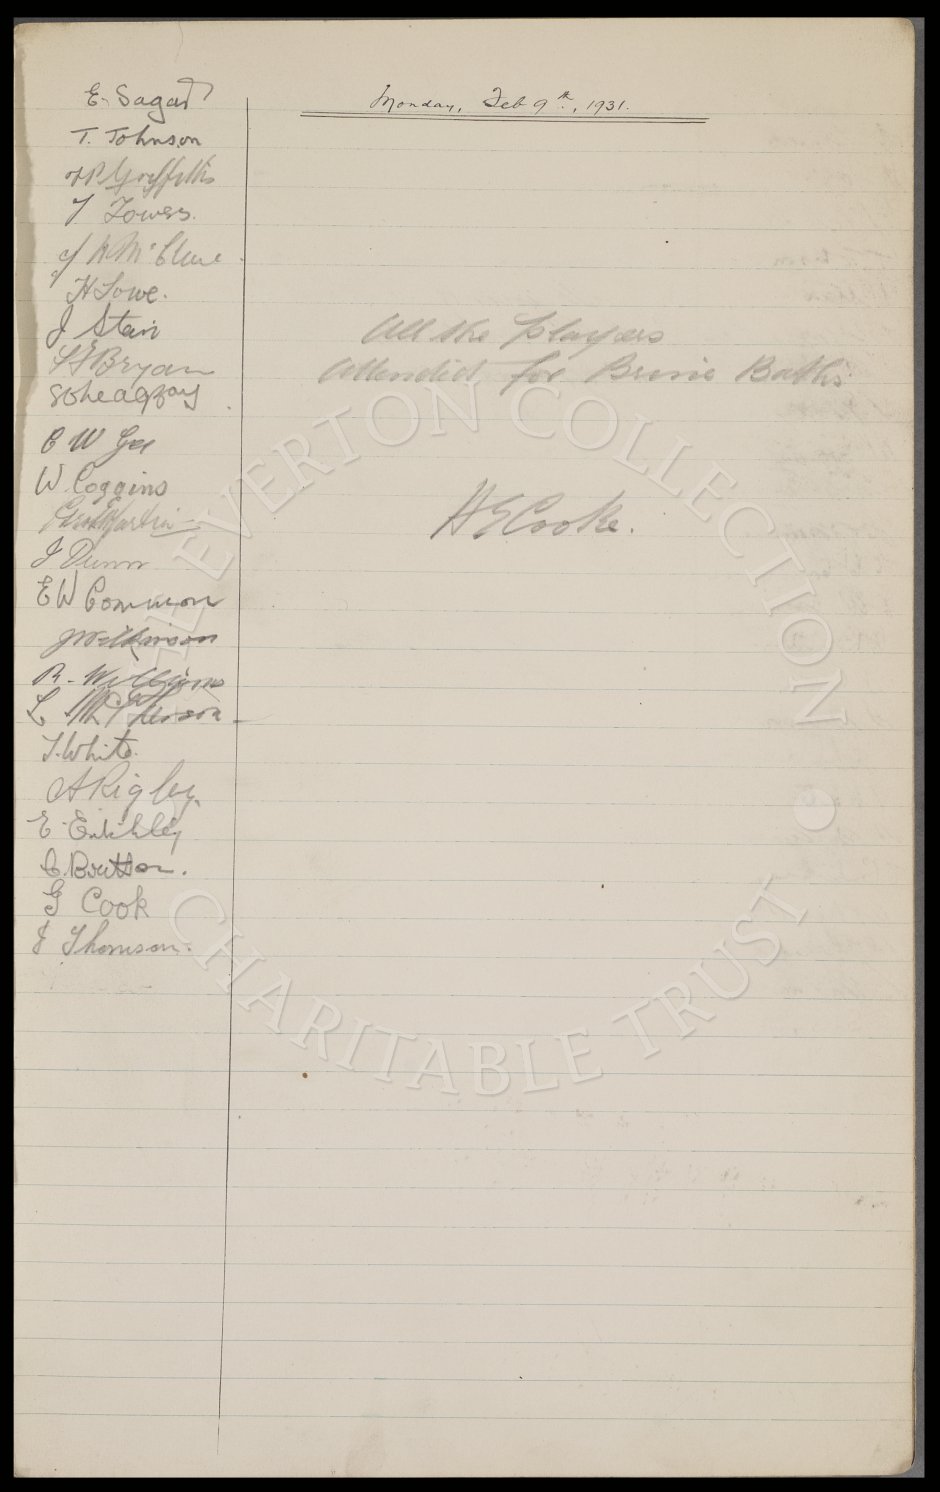 Monday, Feb 9th, 1931.
E. Sagar
T. Johnson
P. Griffiths
T Towers.
J H McClure
H Lowe.
J Stein
L F Bryan
C W Gee
W. Coggins
Martin
J Dunn
EW Common
J Wilkinson
R. Williams
L McPherson
T. White.
A Rigby.
E. Critchley
C. Britton.
G Cook
J Thomson.
All the Players
Attended for Brine Baths
H E Cooke.
THE EVERTON COLLECTION
CHARITABLE TRUST